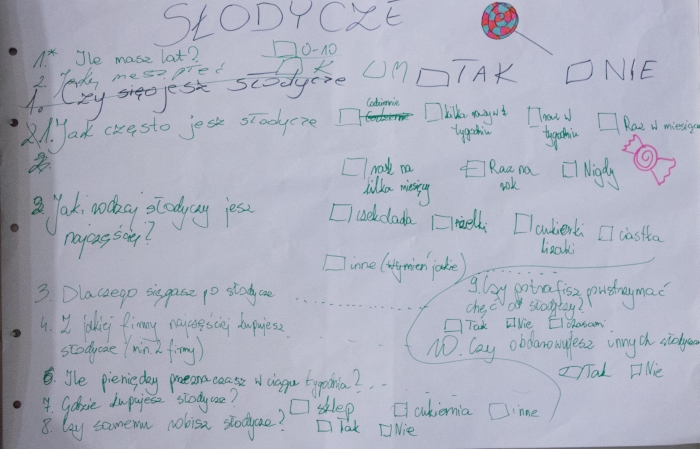 SŁODYCZE
1.* Ile masz lat? 0-10
2. Jaką masz płeć K M
1. Czy jesz słodycze TAK NIE
2.1. Jak często jesz słodycze Codziennie kilka razy w tygodniu raz w tygodniu Raz w miesiącu
2.
raz na kilka miesięcy Raz na rok Nigdy
3. Jaki rodzaj słodyczy jesz najczęściej? czekolada żelki cukierki lizaki ciastka
inne (wymień jakie)
3. Dlaczego sięgasz po słodycze
9. Czy potrafisz powstrzymać chęć od słodyczy?
Tak Nie czasami
4. Z jakiej firmy najczęściej kupujesz słodycze (min. 2 firmy)
10. Czy obdarowujesz innych słodycza
Tak Nie
6. Ile pieniędzy przeznaczasz w ciągu tygodnia?
7. Gdzie kupujesz słodycze? sklep cukiernia inne
8. Czy samemu robisz słodycze? Tak Nie